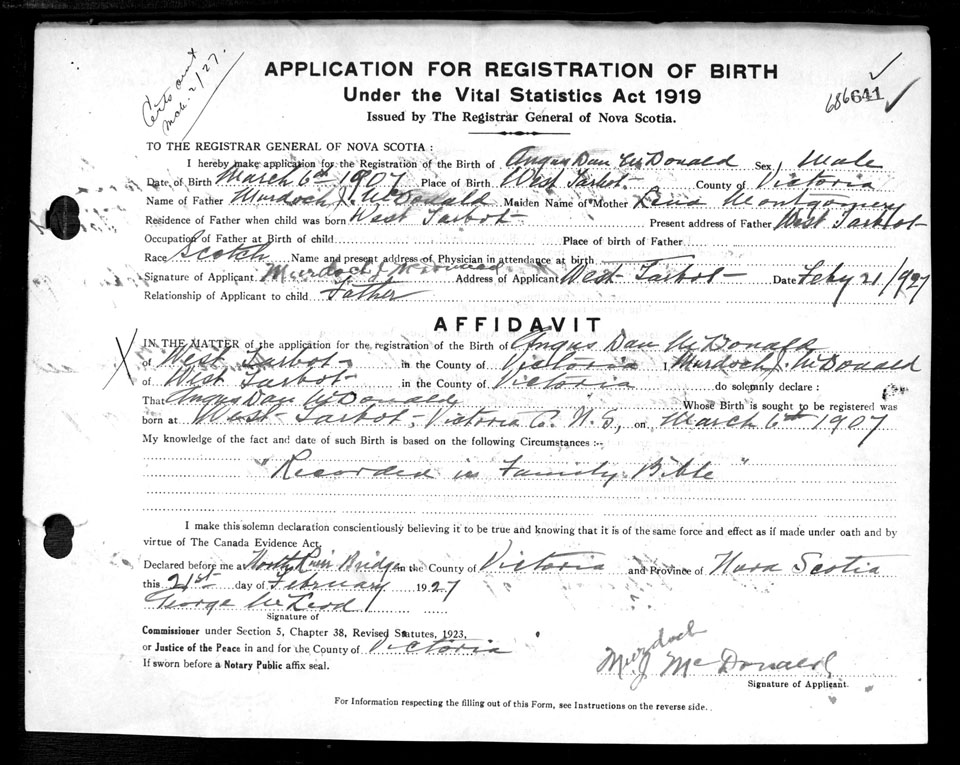 Certs amt
Mar 2/27.
APPLICATION FOR REGISTRATION OF BIRTH
Under the Vital Statistics Act 1919
686641
Issued by The Registrar General of Nova Scotia.
TO THE REGISTRAR GENERAL OF NOVA SCOTIA:
I hereby make application for the Registration of the Birth of Angus Dan McDonald Sex Male
Date of Birth March 6th 1907 Place of Birth West Tarbot County of Victoria
Name of Father Murdoch J. McDonald Maiden Name of Mother Lena Montgomery
Residence of Father when child was born West Tarbot Present address of Father West Tarbot
Occupation of Father at Birth of child Place of birth of Father
Race Scotch Name and present address of Physician in attendance at birth
Signature of Applicant Murdoch J McDonald Address of Applicant West Tarbot Date Feby 21/1927
Relationship of Applicant to child Father
AFFIDAVIT
IN THE MATTER of the application for the registration of the Birth of Angus Dan McDonald
of West Tarbot in the County of Victoria I Murdoch J. McDonald
of West Tarbot in the County of Victoria do solemnly declare:
That Angus Dan McDonald Whose Birth is sought to be registered was
born at West Tarbot, Victoria C. N. S., on March 6th 1907
My knowledge of the fact and date of such Birth is based on the following Circumstances:-
"Recorded in Family Bible"
I make this solemn declaration conscientiously believing it to be true and knowing that it is of the same force and effect as if made under oath and by
virtue of The Canada Evidence Act.
Declared before me at North River Bridge in the County of Victoria and Province of Nova Scotia
this 21st day of February 1927
George McLeod
Signature of
Commissioner under Section 5, Chapter 38, Revised Statutes, 1923,
or Justice of the Peace in and for the County of Victoria
If sworn before a Notary Public affix seal.
Murdoch
J McDonald
Signature of Applicant.
For Information respecting the filling out of this Form, see Instructions on the reverse side.